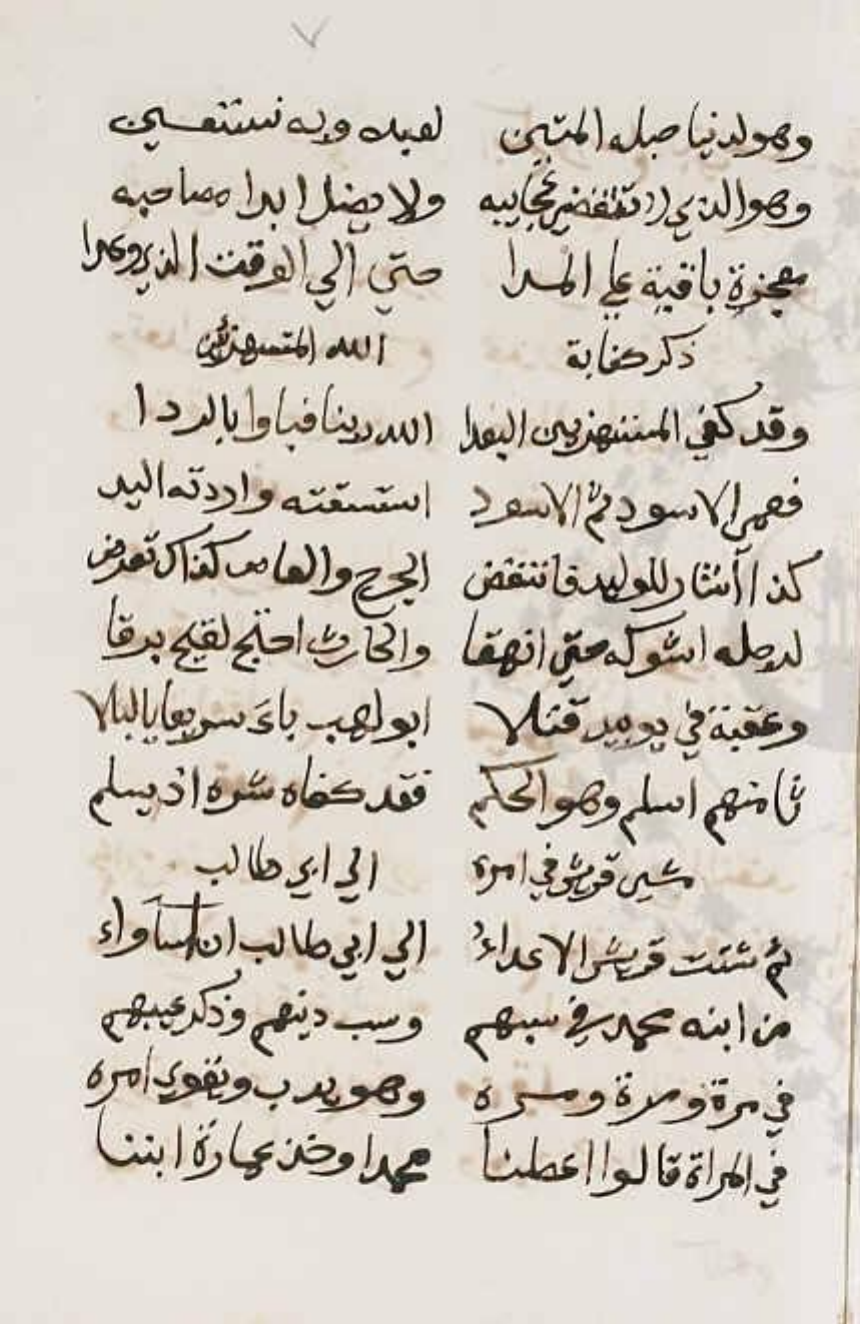 ٧
وهو لدنيا حبله المتين لعبده وبه نستعين
وهو الذي لا تنقضي عجايبه ولا يضل ابدا مصاحبه
معجزة باقية علي المدا حتي الي الوقت الذي وعدا
ذكر كفاية الله المتسهزئين
وقد كفي المستهزيين البعدا الله ربنا فباوا بالردا
فعمي الاسود ثم الاسود استسقته واردته اليد
كذا اشار للوليد فانتقض الجرح والعاص كذاك تعرض
لرجله الشوكه حتي ازهقا والحارث اجتيح لقيح بزقا
وعقبة في يوم بدر قتلا ابو لهب باء سريعا بالبلا
ثامنهم اسلم وهو الحكم فقد كفاه شره اذ يسلم
مشي قريش في امره الي ابي طالب
ثم مشت قريش الاعداء الي ابي طالب ان اساواء
من ابنه محمد في سبهم وسب دينهم وذكر عيبهم
في مرة ومرة ومره وهو يذب ويقوي امره
في المراة قالوا اعطنا محمدا وخذ عمارة ابننا